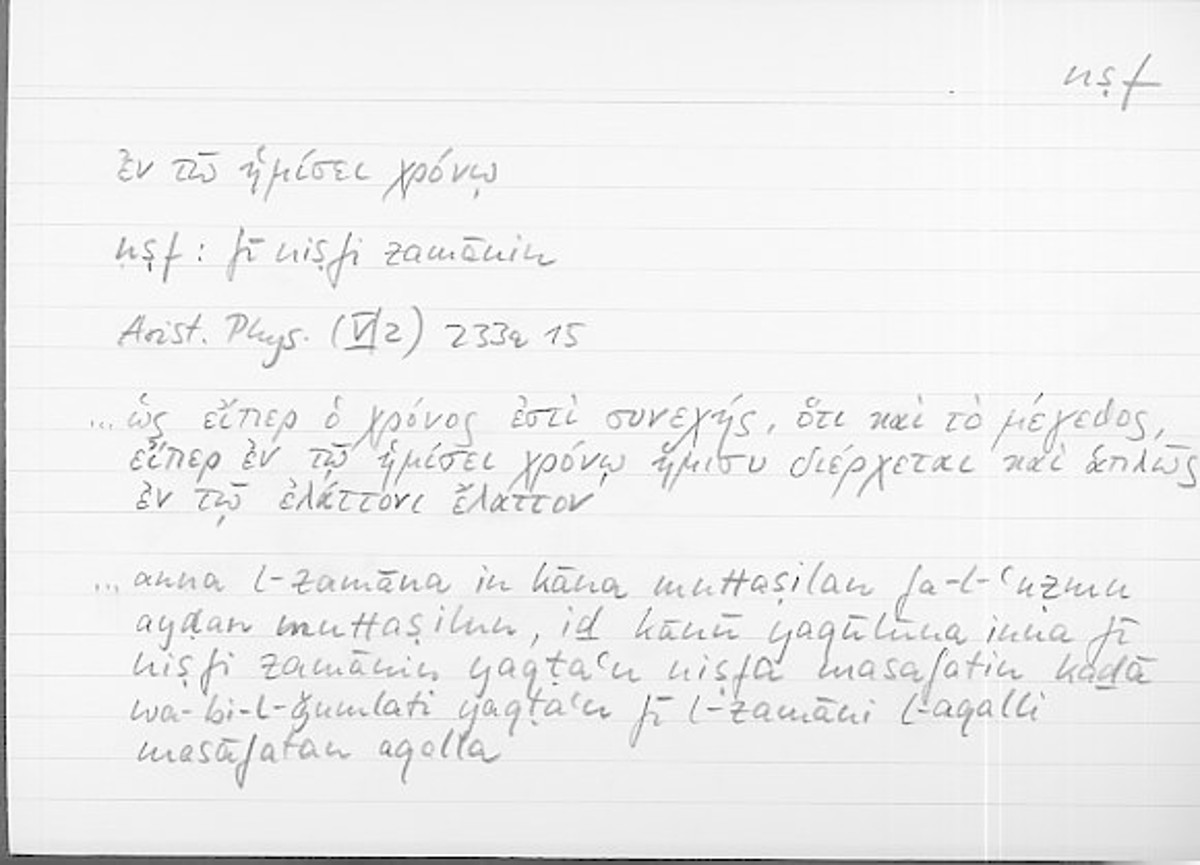 nṣf
ἐν τῷ ἡμίσει χρόνῳ
nṣf: fī niṣfi zamānin
Arist. Phys. (VI 2) 233a 15
... ὡς εἴπερ ὁ χρόνος ἐστὶ συνεχής, ὅτι καὶ τὸ μέγεθος,
εἴπερ ἐν τῷ ἡμίσει χρόνῳ ἥμισυ διέρχεται καὶ ἁπλῶς
ἐν τῷ ἐλάττονι ἔλαττον
... anna l-zamāna in kāna muttaṣilan fa-l-ʿuẓmu
ayḍan muttaṣilun, iḏ kānū yaqūlūna inna fī
niṣfi zamānin yaqṭaʿu niṣfa masafatin kaḏā
wa-bi-l-ǧumlati yaqṭaʿu fī l-zamāni l-aqalli
masāfatan aqalla